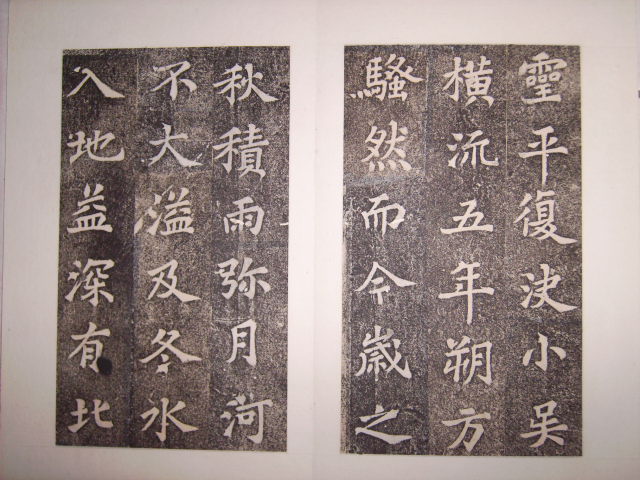 靈平復決小吳
橫流五年朔方
騷然而今歲之
秋積雨弥月河
不大溢及冬水
入地益深有北